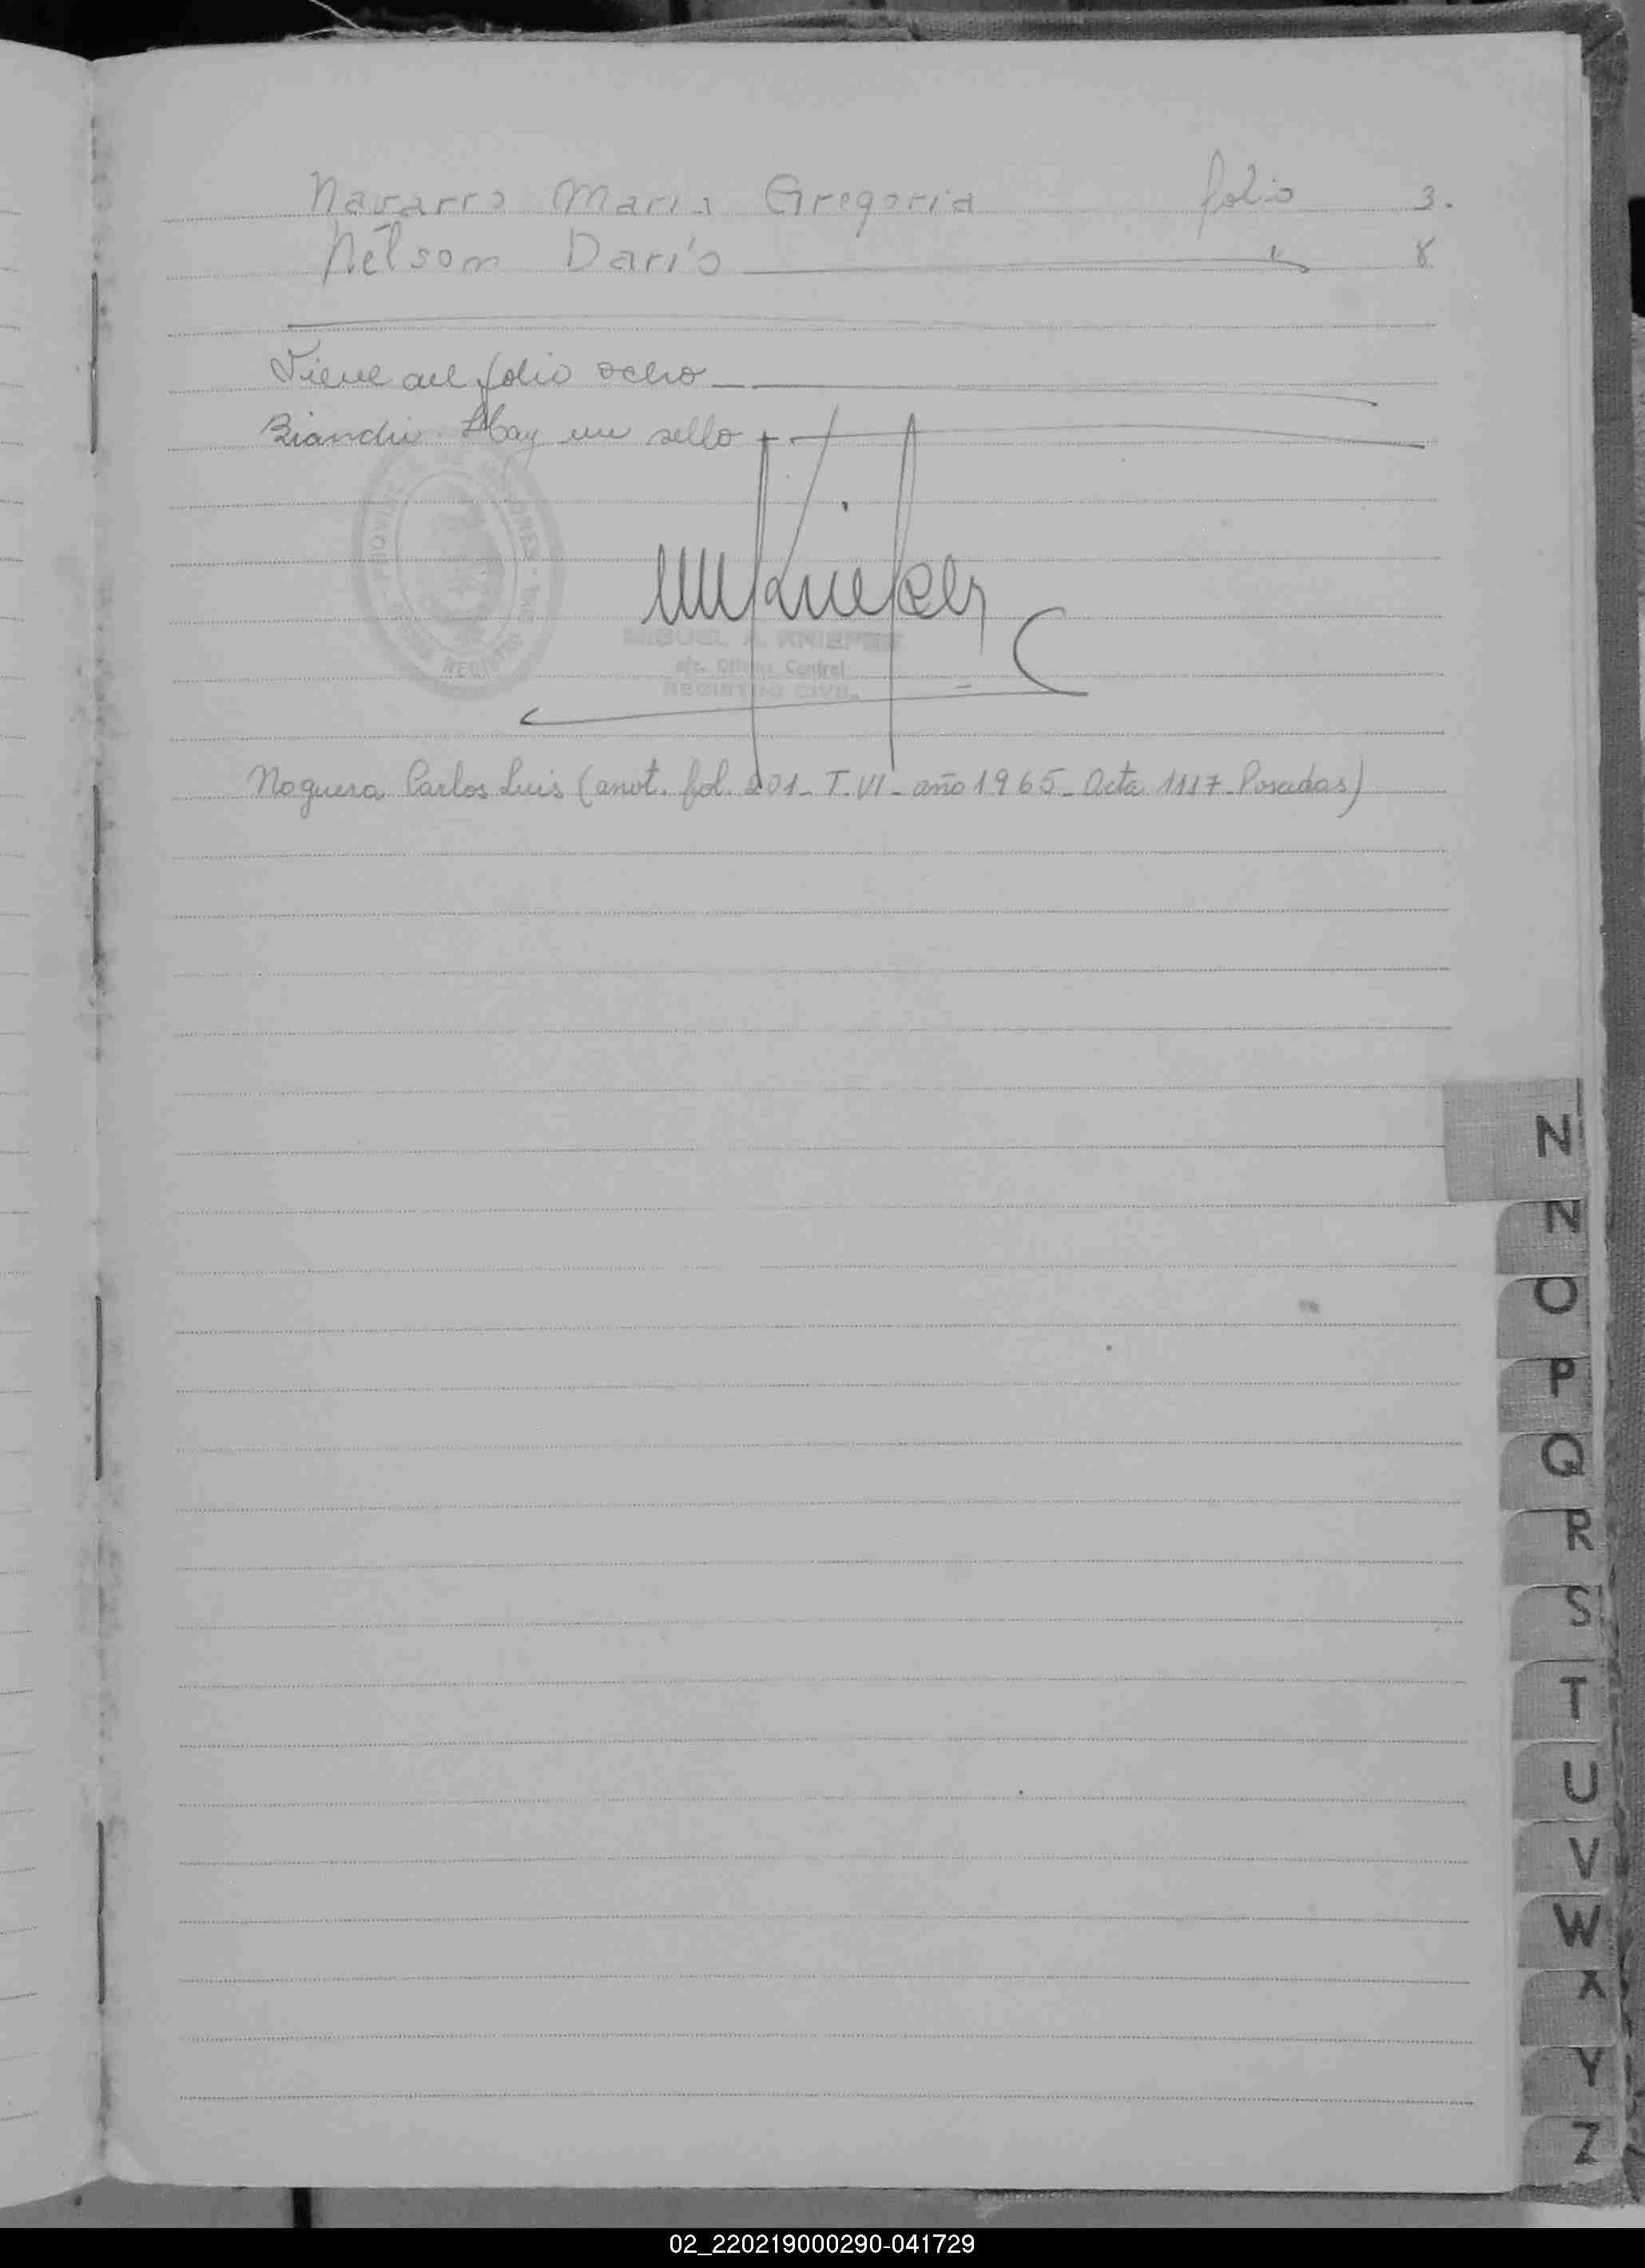 Navarro Maria Gregoria folio 3.
Nélson Darío " 8
Viene del folio ocho
Bianchi. Hay un sello
REGISTRO
MIGUEL A. KNIEPER
Oficina Central
REGISTRO CIVIL
Noguera Carlos Luis (anot. fol. 201- T. VI - año 1965 - Acta 1117 - Posadas)
N
Ñ
O
P
Q
R
S
T
U
V
W
X
Y
Z
02_220219000290-041729